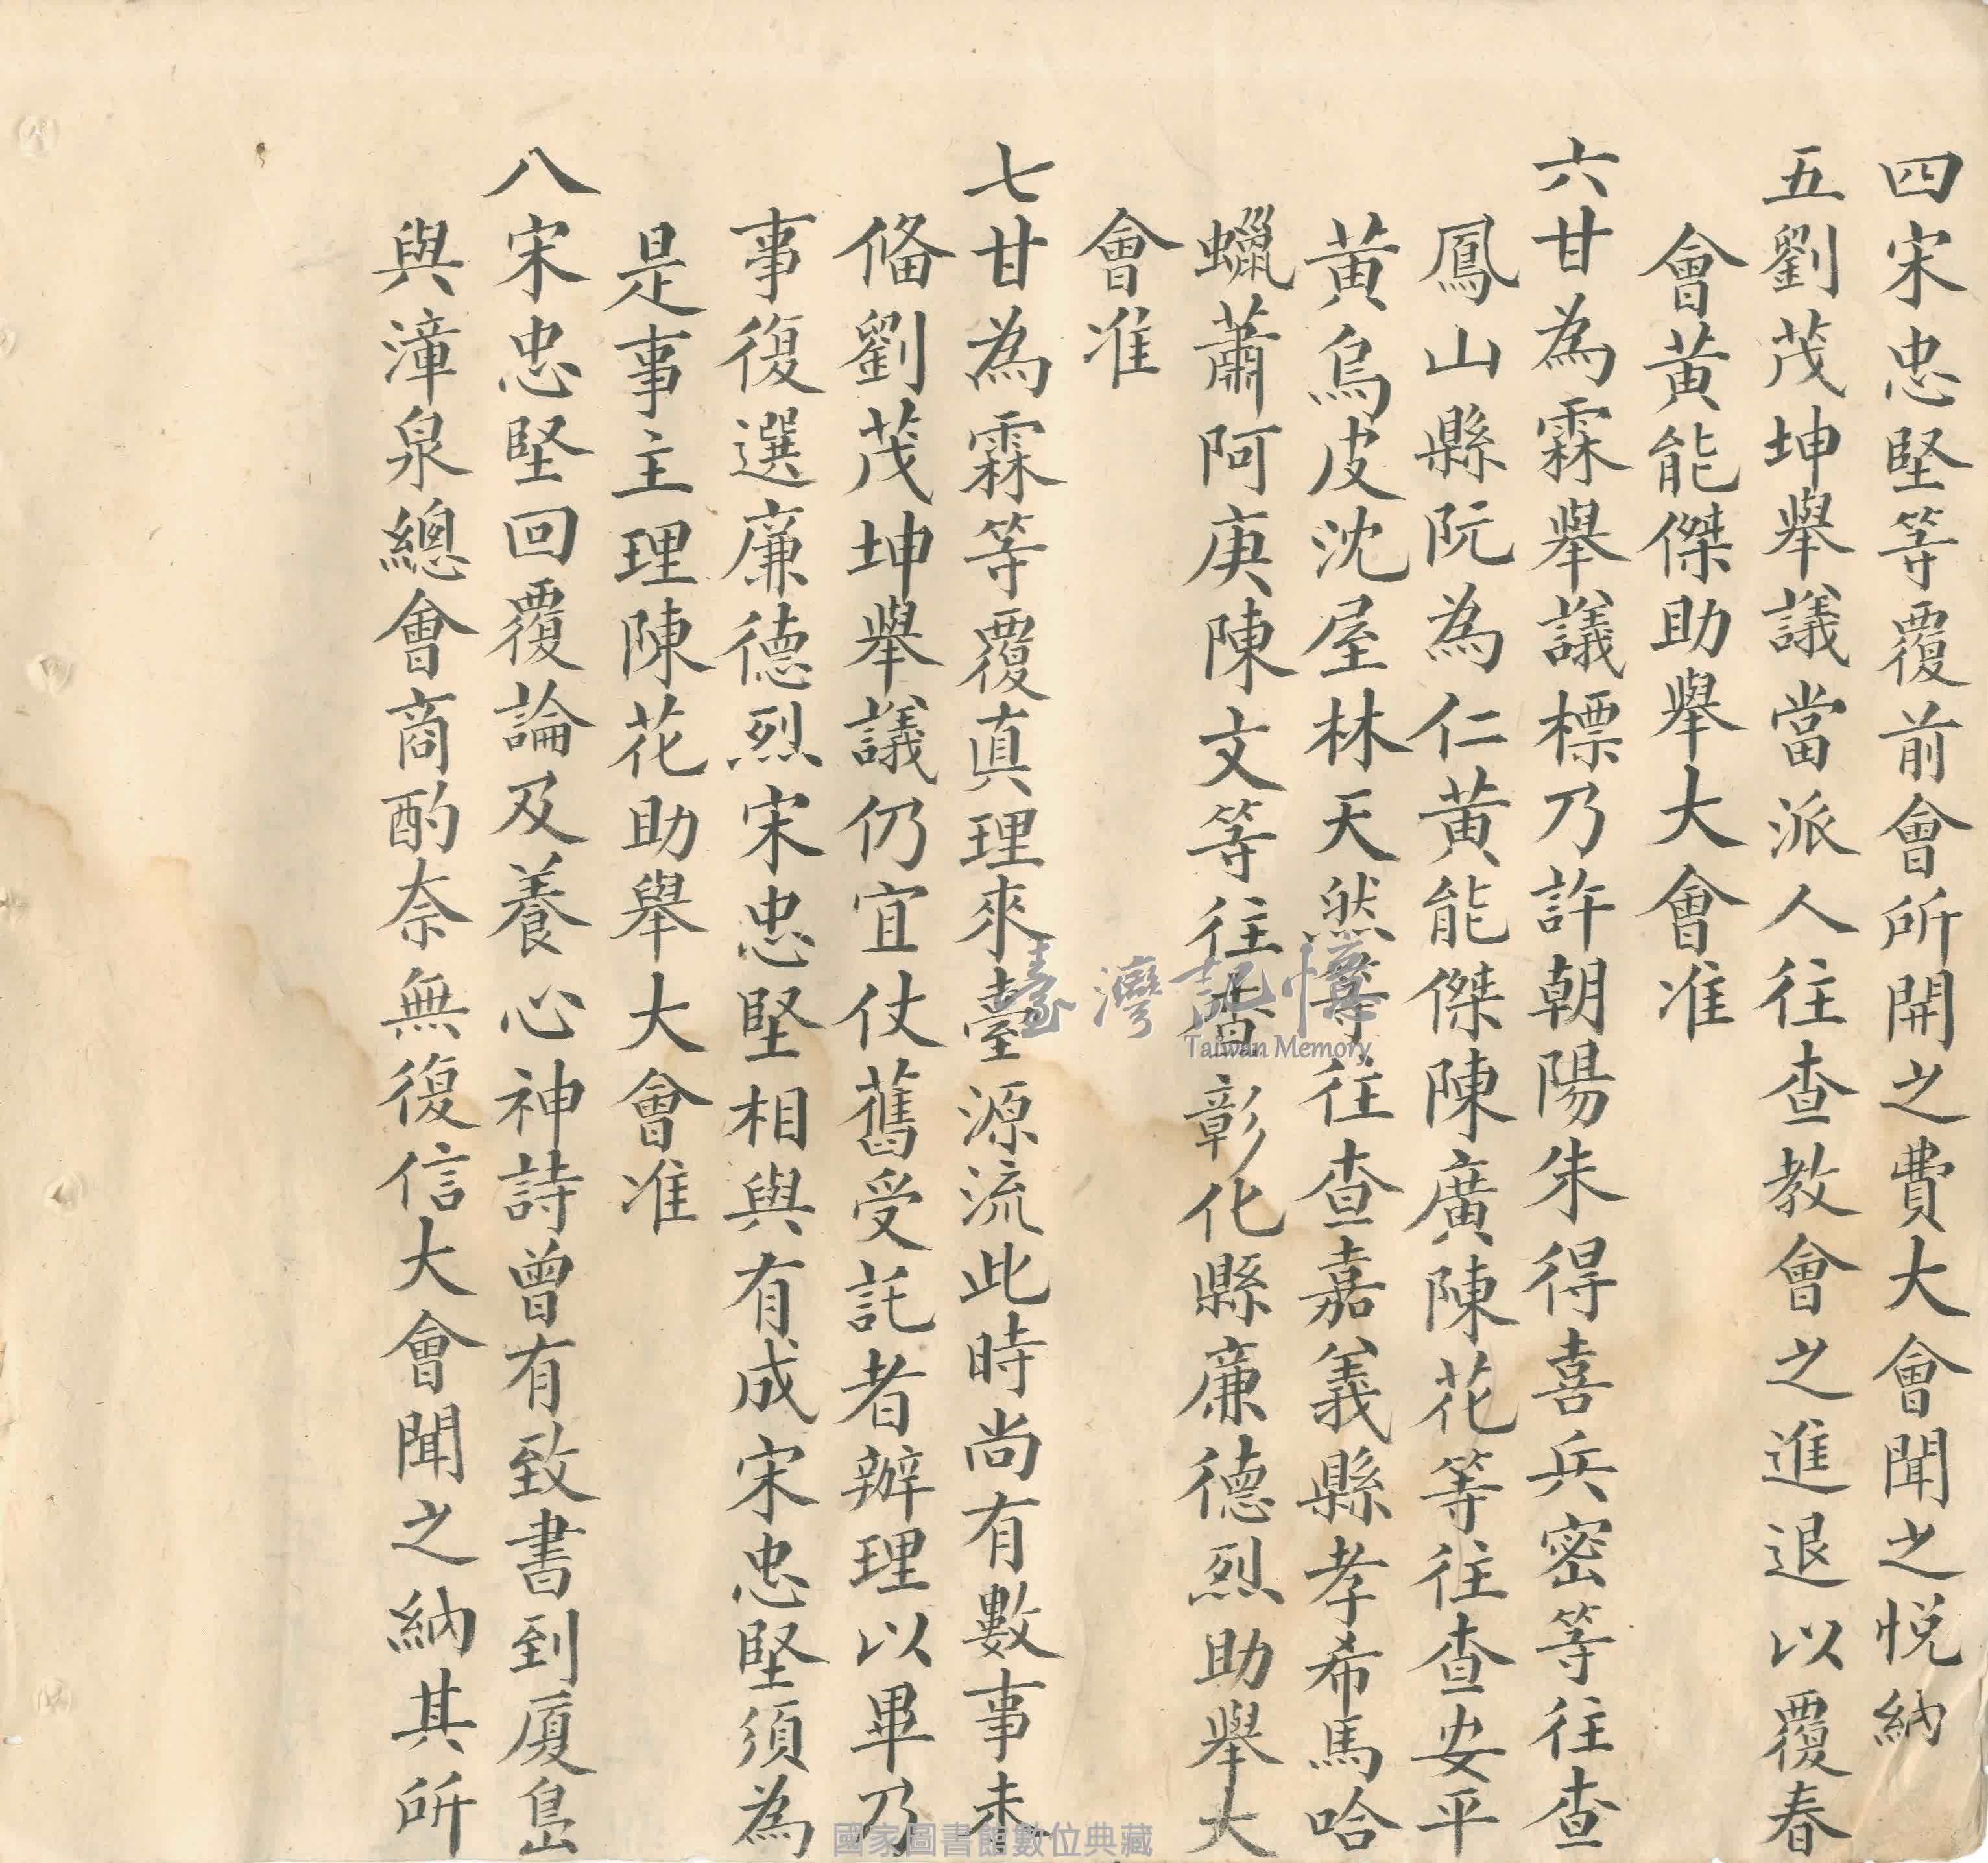 四宋忠堅等覆前會所開之費大會聞之悅納
五劉茂坤舉議當派人往查教會之進退以覆春
會黃能傑助舉大會准
六甘為霖舉議標乃許朝陽朱得喜兵密等往查
鳳山縣阮為仁黃能傑陳廣陳花等往查安平
黃烏皮沈屋林天然等往查嘉義縣孝希馬哈
蠟蕭阿庚陳文等往查彰化縣廉德烈助舉大
會准
七甘為霖等覆真理來臺源流此時尚有數事未
俻劉茂坤舉議仍宜仗舊受託者辦理以畢乃
事復選廉德烈宋忠堅相與有成宋忠堅須為
是事主理陳花助舉大會准
八宋忠堅回覆論及養心神詩曾有致書到廈島
與漳泉總會商酌奈無復信大會聞之納其所
臺灣記憶
Taiwan Memory
國家圖書館數位典藏